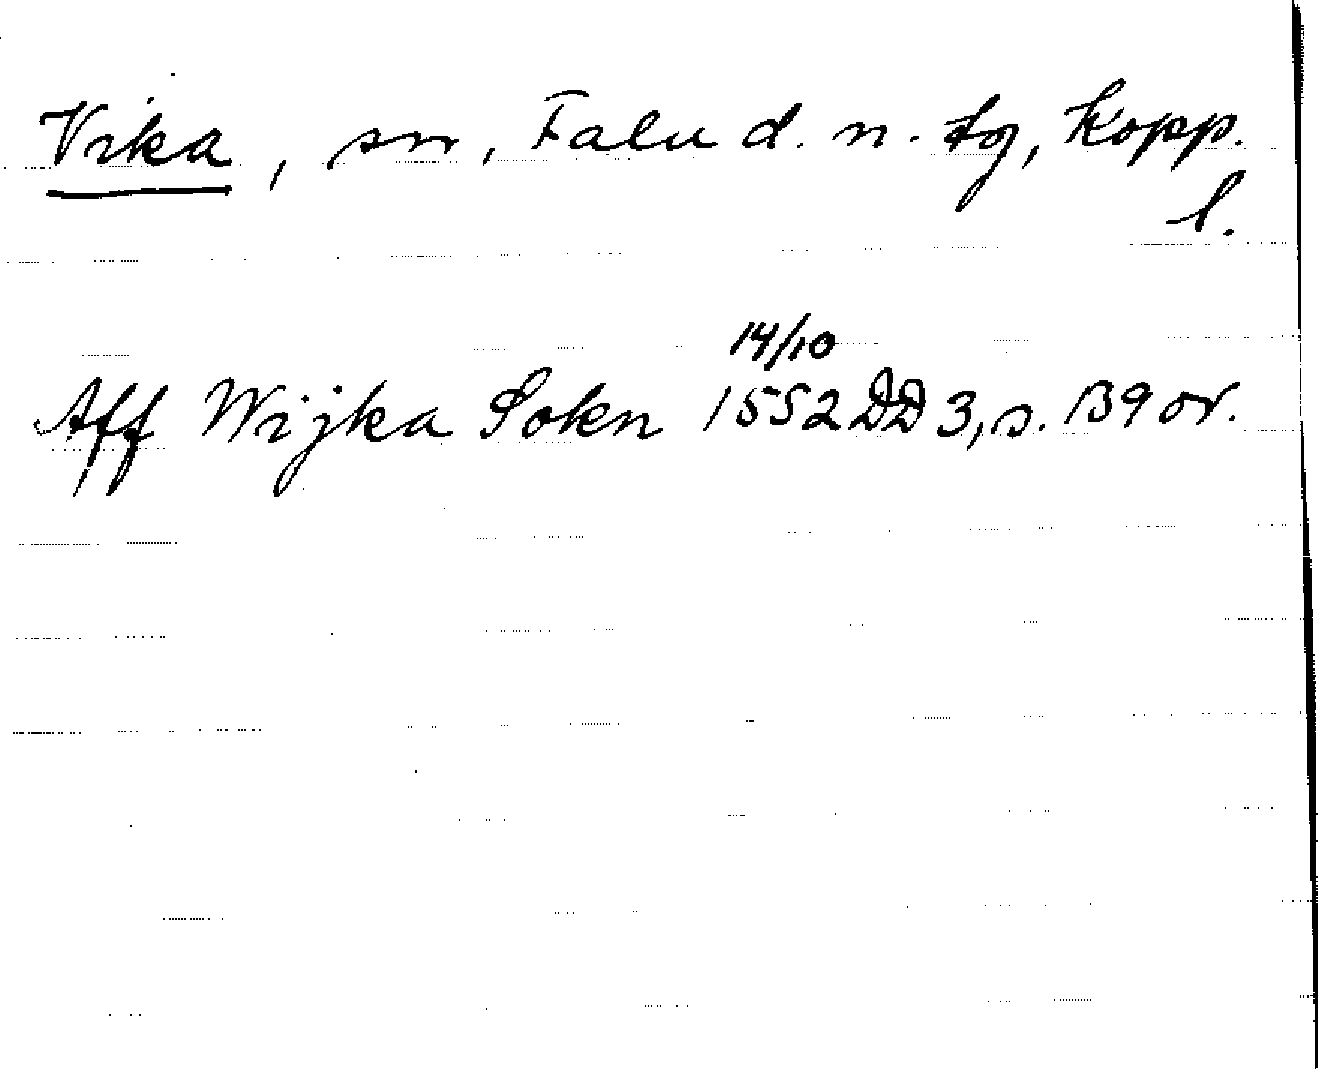 Vika, sn, Falu d. n. tg, Kopp.
l.
14/10
Aff Wijka Sokn 1552 DD 3, s. 139 or.